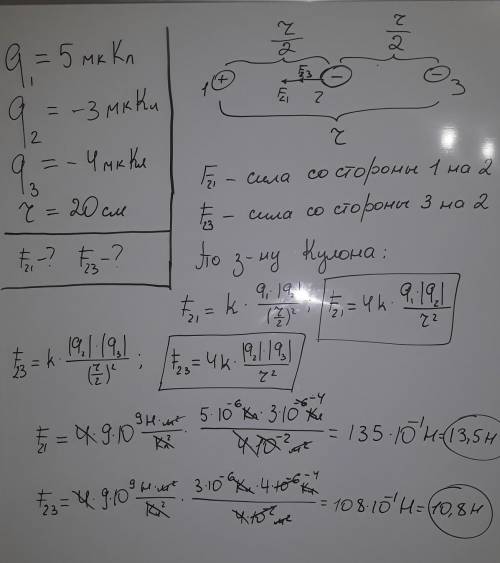 q₁ = 5 мкКл
q₂ = -3 мкКл
q₃ = -4 мкКл
r = 20 см
F₂₁ - ? F₂₃ - ?
r/2 r/2
1 + F₂₃ - - 3
F₂₁ 2
r
F₂₁ - сила со стороны 1 на 2
F₂₃ - сила со стороны 3 на 2
По з-ну Кулона:
F₂₁ = k · q₁·|q₂| / (r/2)² ; F₂₁ = 4k · q₁·|q₂| / r²
F₂₃ = k · |q₂|·|q₃| / (r/2)² ; F₂₃ = 4k · |q₂|·|q₃| / r²
F₂₁ = 4·9·10⁹ Н·м²/Кл² · 5·10⁻⁶ Кл · 3·10⁻⁶ ⁻⁴ Кл / 4·10⁻² м² = 135·10⁻¹ Н = 13,5 Н
F₂₃ = 4·9·10⁹ Н·м²/Кл² · 3·10⁻⁶ Кл · 4·10⁻⁶ ⁻⁴ Кл / 4·10⁻² м² = 108·10⁻¹ Н = 10,8 Н